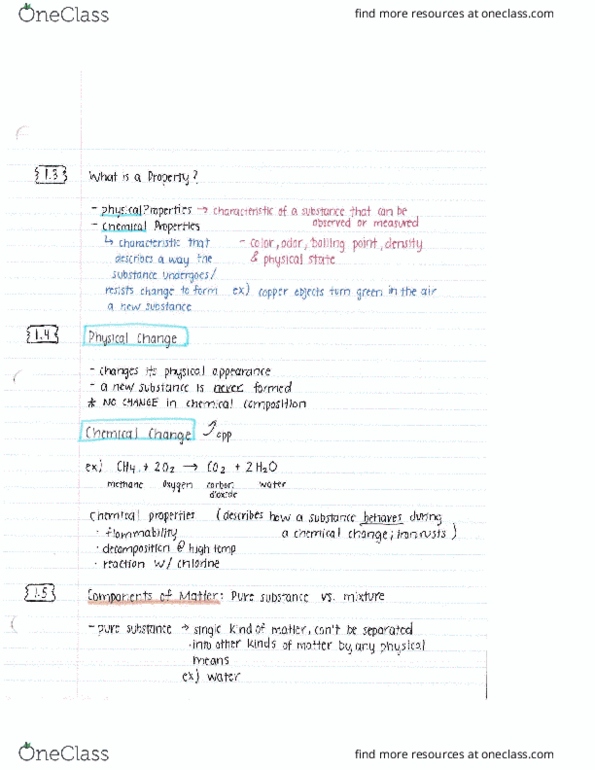 OneClass
find more resources at oneclass.com
1.3 What is a Property?
- physical Properties → characteristic of a substance that can be
observed or measured
- Chemical Properties
↳ characteristic that
describes a way the
substance undergoes/
resists change to form
a new substance
- color, odor, boiling point, density
& physical state
ex) copper objects turn green in the air
1.4 Physical Change
- changes its physical appearance
- a new substance is never formed
* NO CHANGE in chemical composition
Chemical Change ⤴ opp
ex) CH4 + 2O2 → CO2 + 2H2O
methane oxygen carbon dioxide water
Chemical properties (describes how a substance behaves during
a chemical change; iron rusts)
· flammability
· decomposition @ high temp
· reaction w/ chlorine
1.5 Components of Matter: Pure substance vs. mixture
- pure substance → single kind of matter, can't be separated
· into other kinds of matter by any physical
means
ex) water
OneClass
find more resources at oneclass.com